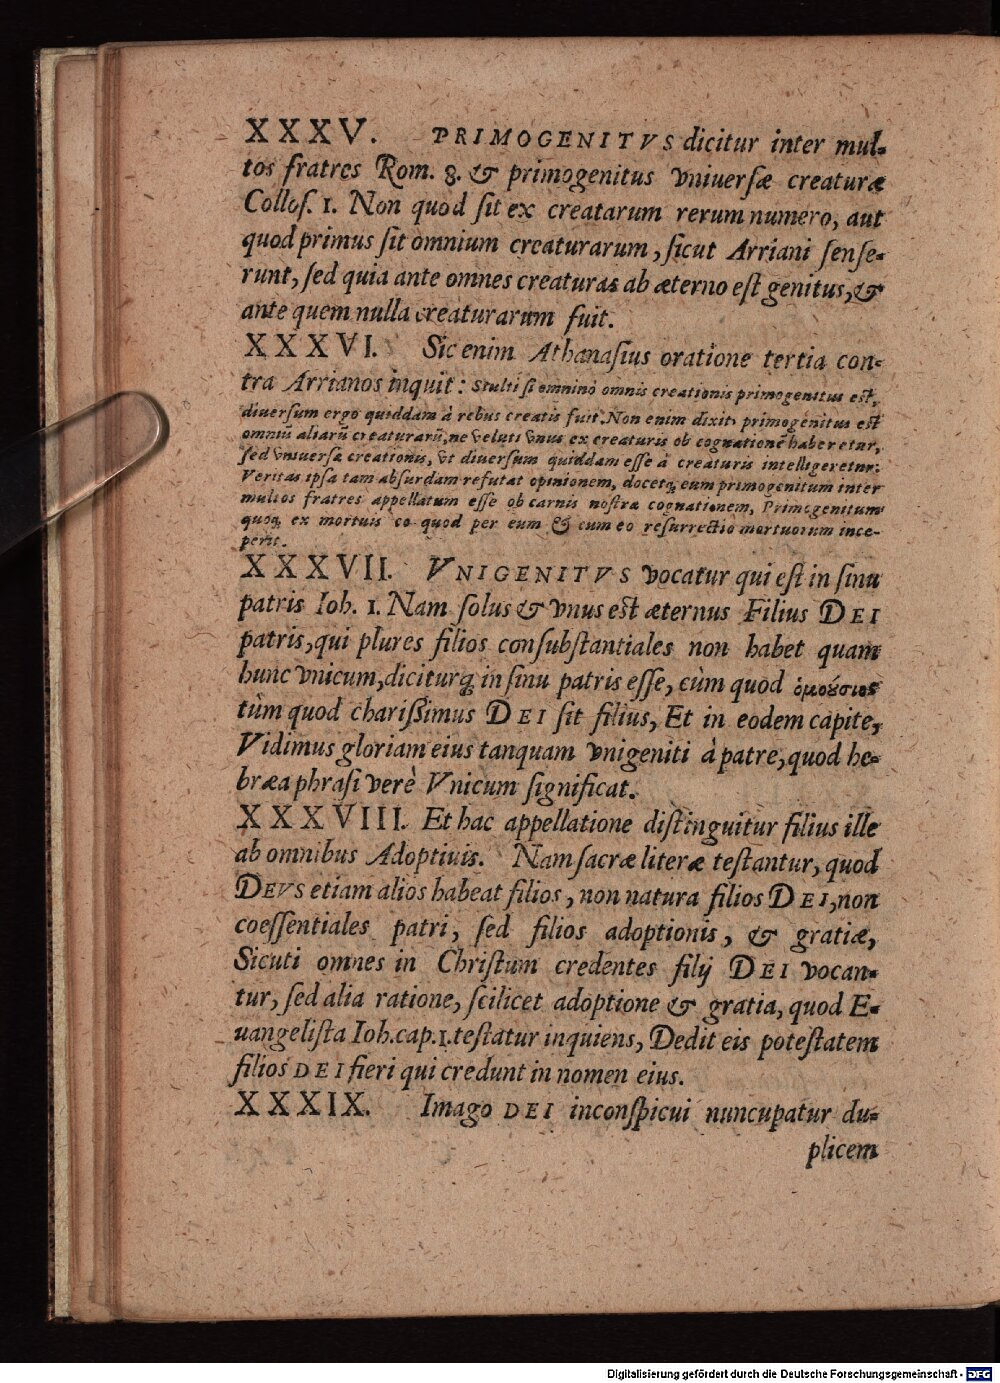 XXXV. PRIMOGENITVS dicitur inter mul-
tos fratres Rom. 8. & primogenitus vniuersæ creaturæ
Collos. 1. Non quod sit ex creatarum rerum numero, aut
quod primus sit omnium creaturarum, sicut Arriani sense-
runt, sed quia ante omnes creaturas ab æterno est genitus, &
ante quem nulla creaturarum fuit.
XXXVI. Sic enim Athanasius oratione tertia con-
tra Arrianos inquit: Stulti si omnino omnis creationis primogenitus est,
diuersum ergo quiddam à rebus creatis fuit. Non enim dixit, primogenitus est
omniũ aliarũ creaturarũ, ne veluti vnus ex creaturis ob cognationẽ haberetur,
sed vniuersæ creationis, vt diuersum quiddam esse à creaturis intelligeretur.
Veritas ipsa tam absurdam refutat opinionem, docetq; eum primogenitum inter
multos fratres appellatum esse ob carnis nostræ cognationem, Primogenitum
quoq; ex mortuis eo quod per eum & cum eo resurrectio mortuorum ince-
perit.
XXXVII. VNIGENITVS vocatur qui est in sinu
patris Ioh. 1. Nam solus & vnus est æternus Filius DEI
patris, qui plures filios consubstantiales non habet quam
hunc vnicum, diciturq; in sinu patris esse, cùm quod ὁμούσιος
tùm quod charissimus DEI sit filius, Et in eodem capite,
Vidimus gloriam eius tanquam vnigeniti à patre, quod he-
bræa phrasi verè Vnicum significat.
XXXVIII. Et hac appellatione distinguitur filius ille
ab omnibus Adoptiuis. Nam sacræ literæ testantur, quod
DEVS etiam alios habeat filios, non natura filios DEI, non
coessentiales patri, sed filios adoptionis, & gratiæ,
Sicuti omnes in Christum credentes filij DEI vocan-
tur, sed alia ratione, scilicet adoptione & gratia, quod E-
uangelista Ioh. cap. 1. testatur inquiens, Dedit eis potestatem
filios DEI fieri qui credunt in nomen eius.
XXXIX. Imago DEI inconspicui nuncupatur du-
plicem
Digitalisierung gefördert durch die Deutsche Forschungsgemeinschaft - DFG